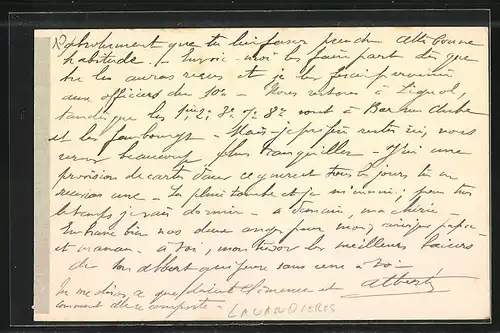 absolument que tu lui fasses prendre cette bonne
habitude. - Envoie-moi les faire part dès que
tu les auras reçus et je les ferai parvenir
aux officiers du 10e - Nous restons à
tandis que les 1er, 2e, 3e, 7e, 8e vont à Bar sur Aube
et les faubourgs - Mais je préfère rester ici, nous
serons beaucoup plus tranquilles - J'ai une
provision de cartes dans ce genre et tous les jours, tu en
recevras une - La pluie tombe et je m'ennuie; pour tuer
le temps je vais dormir - à demain, ma chérie -
Embrasse bien nos deux anges pour moi, ainsi que papa
et maman - à toi, mon trésor les meilleurs baisers
de ton Albert qui pense sans cesse à toi -
Tu me diras, ce que devient Clémence et
comment elle se comporte -
Albert
LAVANDIERES